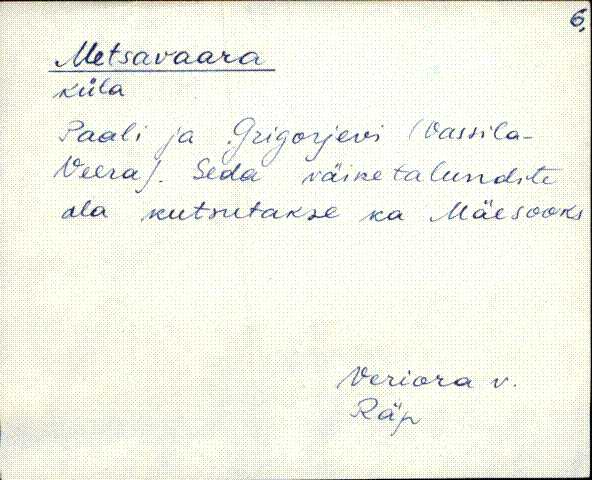 6.
Metsavaara
küla
Paali ja Grigorjevi (Vassila-
Veera). Seda väiketalundite
ala kutsutakse ka Mäesooks
Veriora v.
Räp